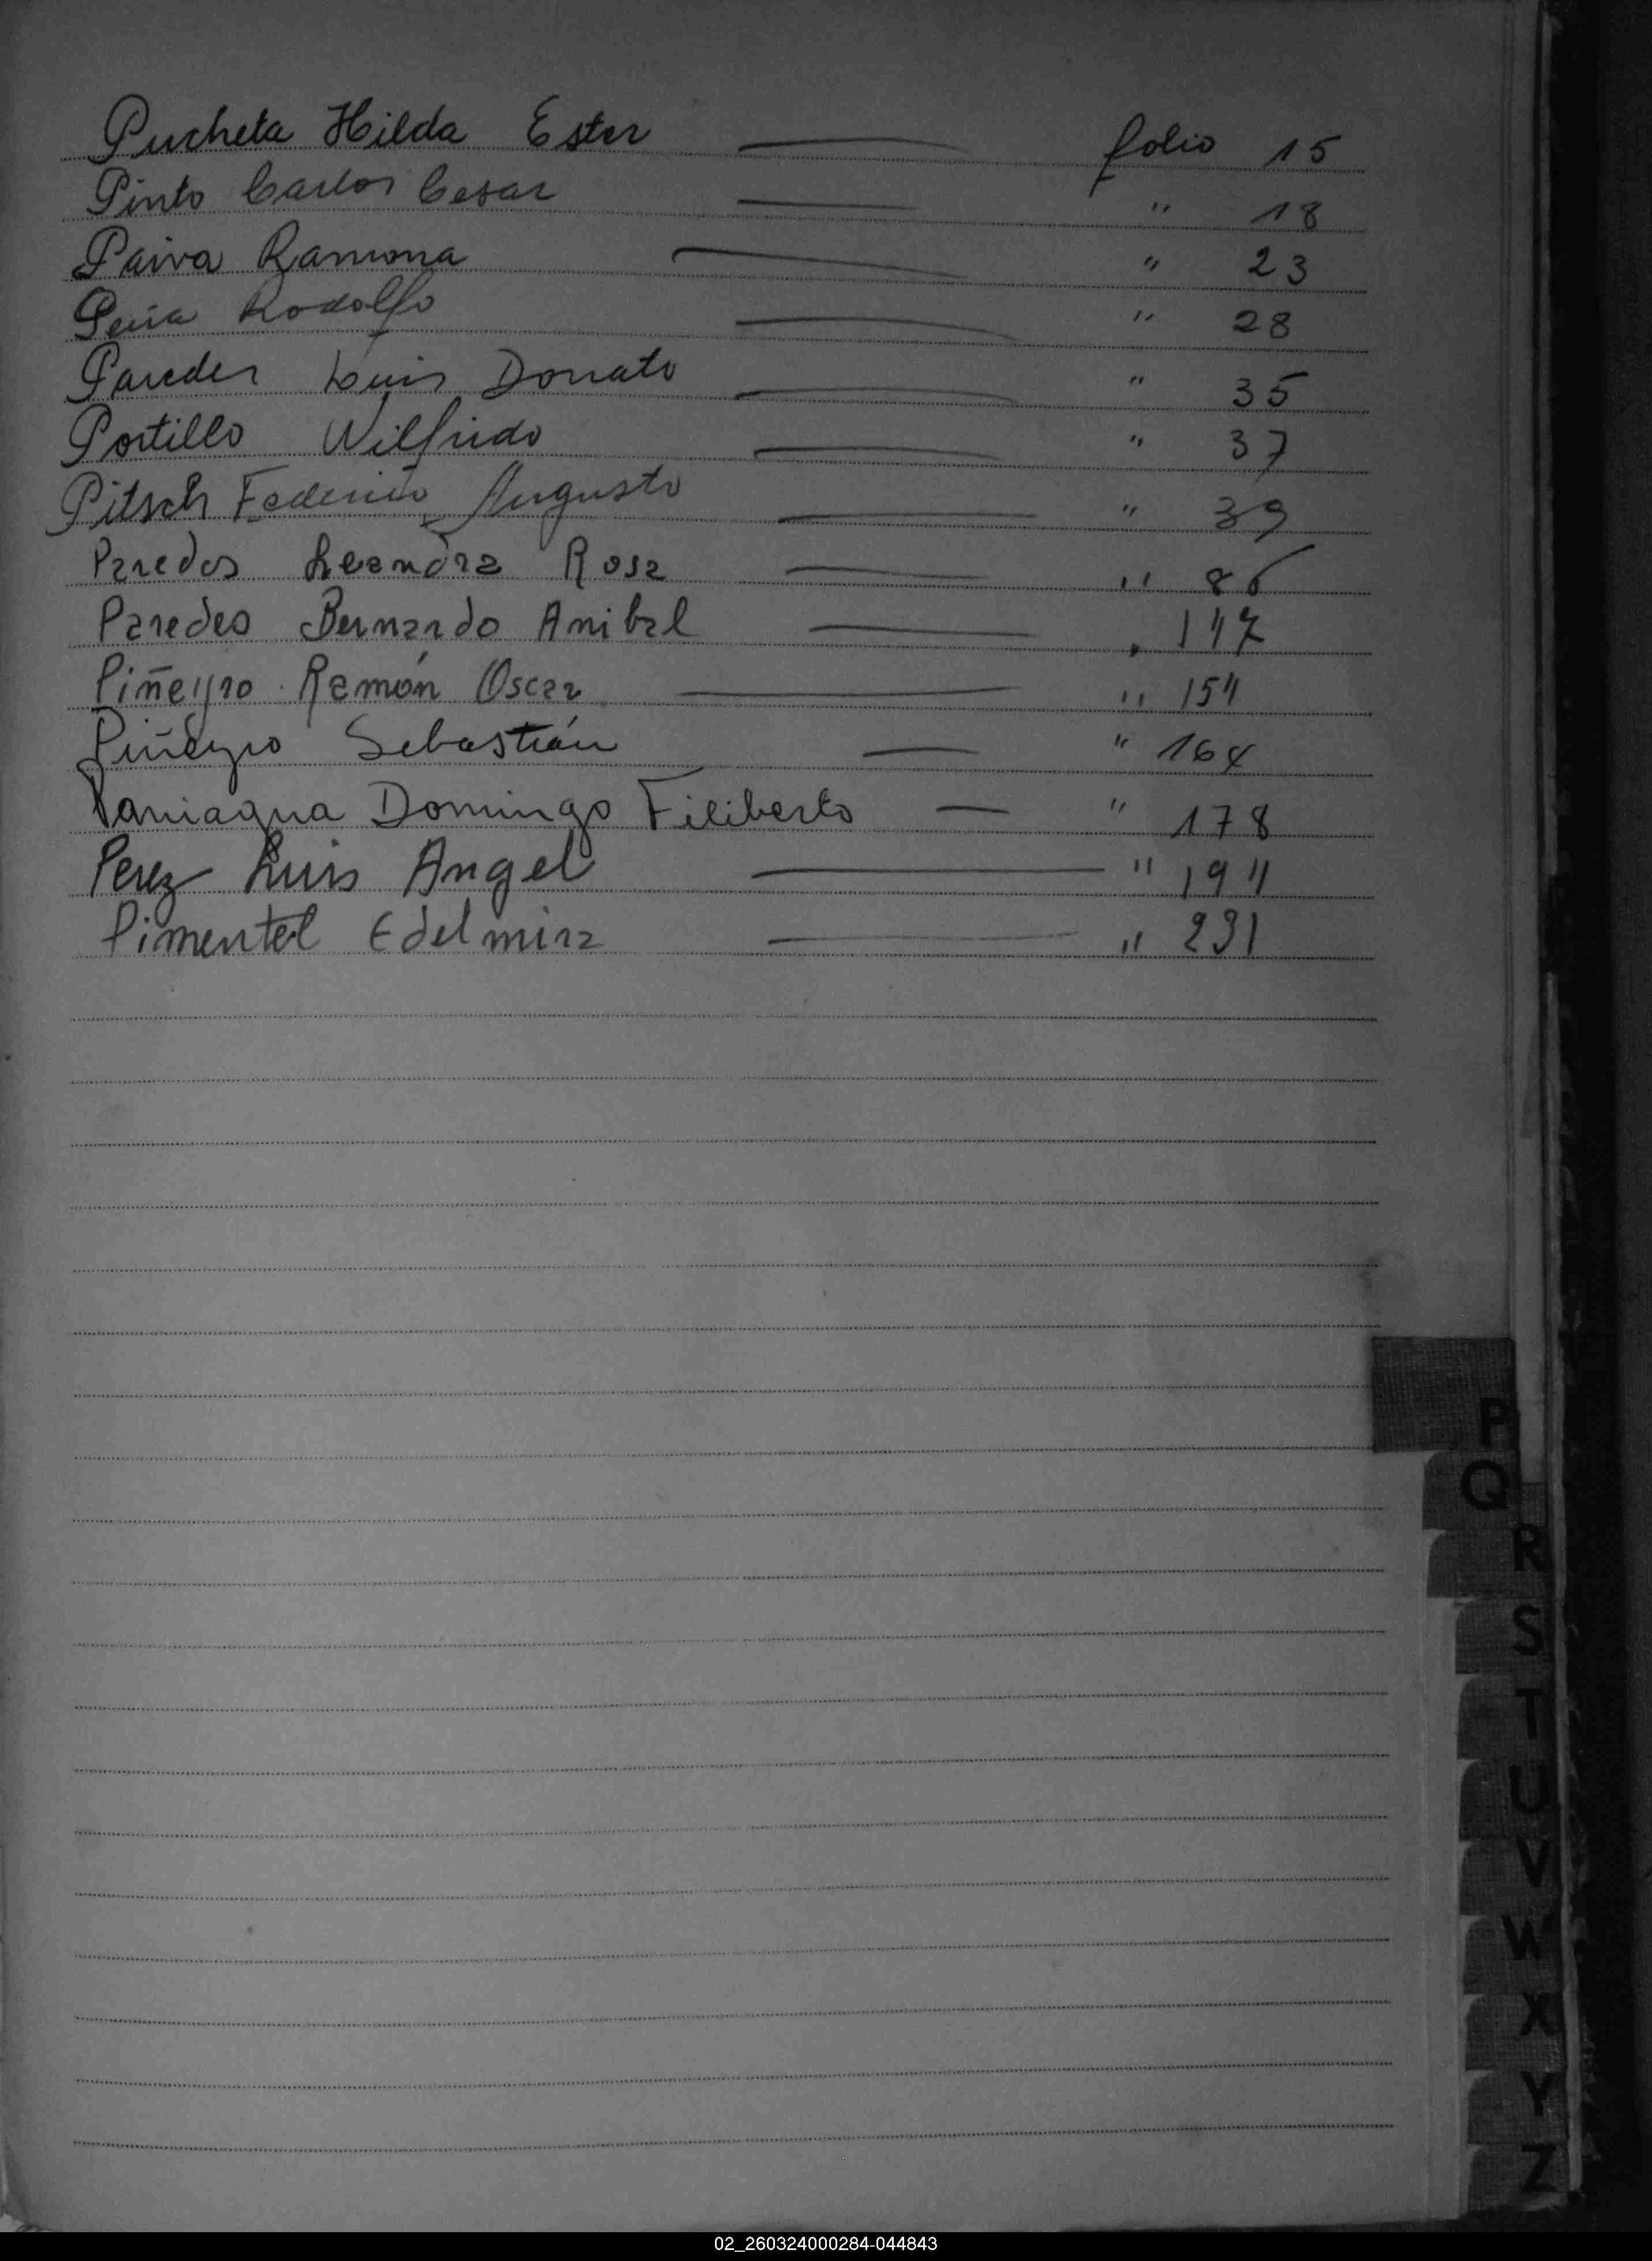 Pucheta Hilda Ester — folio 15
Pinto Carlos Cesar — " 18
Paiva Ramona — " 23
Peña Rodolfo — " 28
Paredes Luis Donato — " 35
Portillo Wilfrido — " 37
Pitsch Federico Augusto — " 39
Paredes Leandra Rosa — " 86
Paredes Bernardo Anibal — " 147
Piñeyro Ramón Oscar — " 154
Piñeyro Sebastián — " 164
Paniagua Domingo Filiberto — " 178
Perez Luis Angel — " 194
Pimentel Edelmira — " 231
P
Q
R
S
T
U
V
W
X
Y
Z
02_260324000284-044843